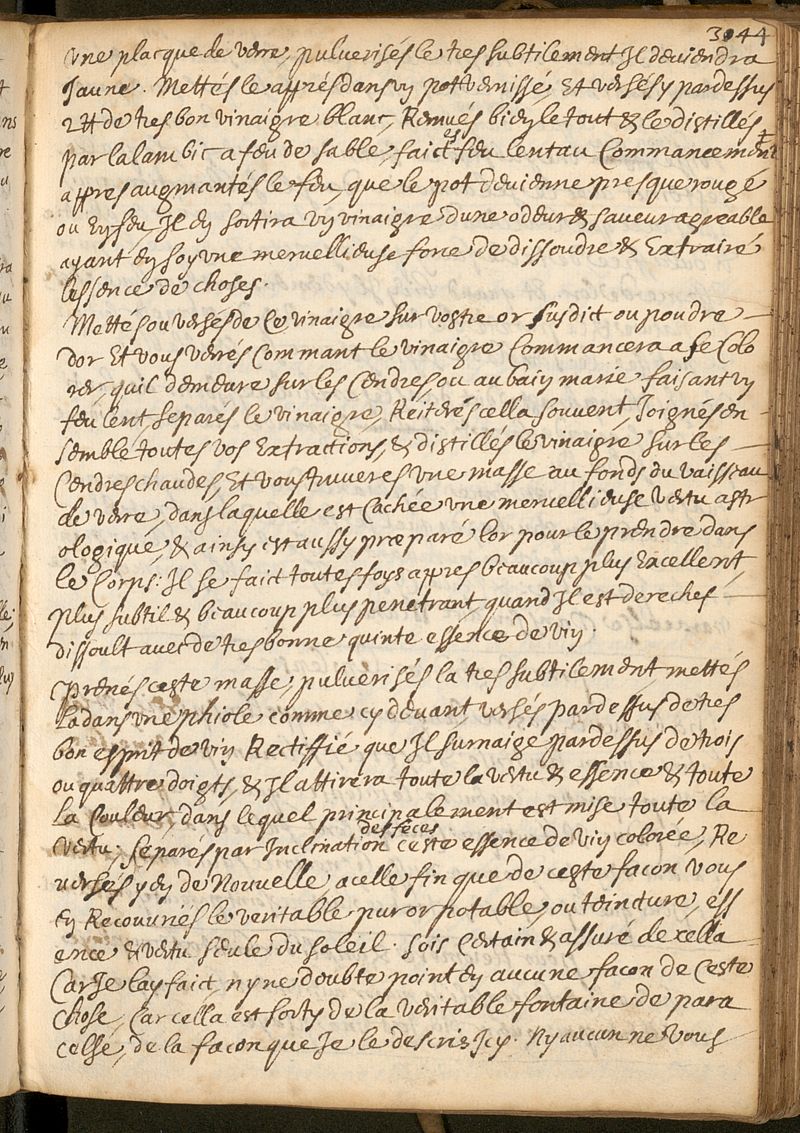 3044
Une placque de verre, pulverisés le tres subtilement Il deviendra
Jaune. Mettés le apprés dans uy pot vernissé, Et versés y pardessus
2 tt de tres bon vinaigre blanc, Remués biey le tout & le distillés
par lalambic a feu de sable, faictes feu lent au Commancement
appres augmantés le feu, que le pot devienne presque rougé
ou ey feu, Il ey sortira uy vinaigre dune odeur & saveur agreable
ayant ey soy une mervellieuse force de dissoudre & Extrairé
lessence de choses.
Mettés ou versés de Ce vinaigre sur vostre or susdict ou poudre
dor Et vous verrés Commant le vinaigre Commancera a se Colo
rer, quil demeure sur les Cendres ou au baiy marie faisant uy
feu lent, separes le vinaigre, Reiterés cella souvent, Joignés en
semble toutes vos Extractions, & distillés le vinaigre sur les
Cendres chaudes, Et vous truveres une masse au fonds du vaisseau
de verre, dans laquelle est Cachée une mervellieuse vertu astr
ologique, & ainsy est aussy præparé lor pour le prendre dans
le Corps: Il se faict toutesfoys appres beaucoup plus Excellent,
plus subtil & beaucoup plus penetrant, quand Il est derechef
dissoult avec de tres bonne quinte essence de viy.
Prenés ceste masse, pulverisés la tres subtilement, mettés
La dans une phiole comme cy devant, versés pardessus de tres
bon esprit de viy Rectiffié que Il surnaige pardessus de trois
ou quattre doigts, & Il attirera toute la vertu & essence & toute
La Couleur, dans lequel principalement est mise toute la
vertu; separés par Inclination des feces ceste essence de viy colorée, Re
versés y ey de Nouvelle a celle fin que de ceste facon vous
ey Recouvriés le veritable pur or potable, ou teincture, ess
ence & vertu seule du soleil. sois Certain & assuré de cella
Car Je lay faict, ny ne doubte point ey aucune facon de Ceste
chose, Car cella est sorty de la veritable fontaine de para
celse, de la facon que Je le descris Icy. Ny aucun ne vous